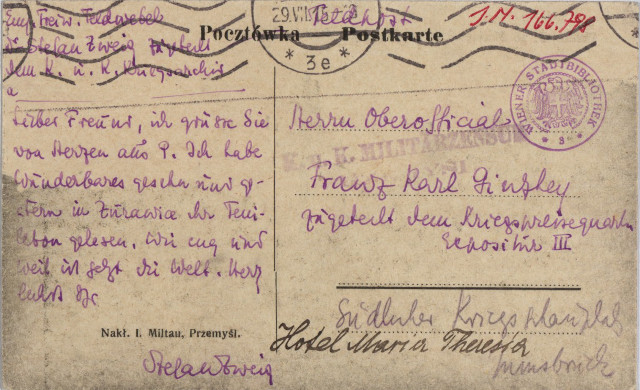 Einj. Freiw. Feldwebel
Dr Stefan Zweig zugeteilt
dem K. u. K. Kriegsarchiv
29.VII.15
3e
Feldpost
J.N. 166.798
Pocztówka Postkarte
WIENER STADTBIBLIOTHEK
Lieber Freund, ich grüsse Sie
von Herzen aus P. Ich habe
wunderbares gesehn und ge-
stern in Zurawia Ihr Feuil-
leton gelesen. Wie eng und
weit ist jetzt die Welt. Herz
lichst Ihr
Stefan Zweig
Nakł. I. Miltau, Przemyśl.
K. u. K. MILITÄRZENSUR
Herrn Oberofficial
Franz Karl Ginzkey
zugeteilt dem Kriegspressequartier
Expositur III
Südlicher Kriegsschauplatz
Hotel Maria Theresia
Innsbruck